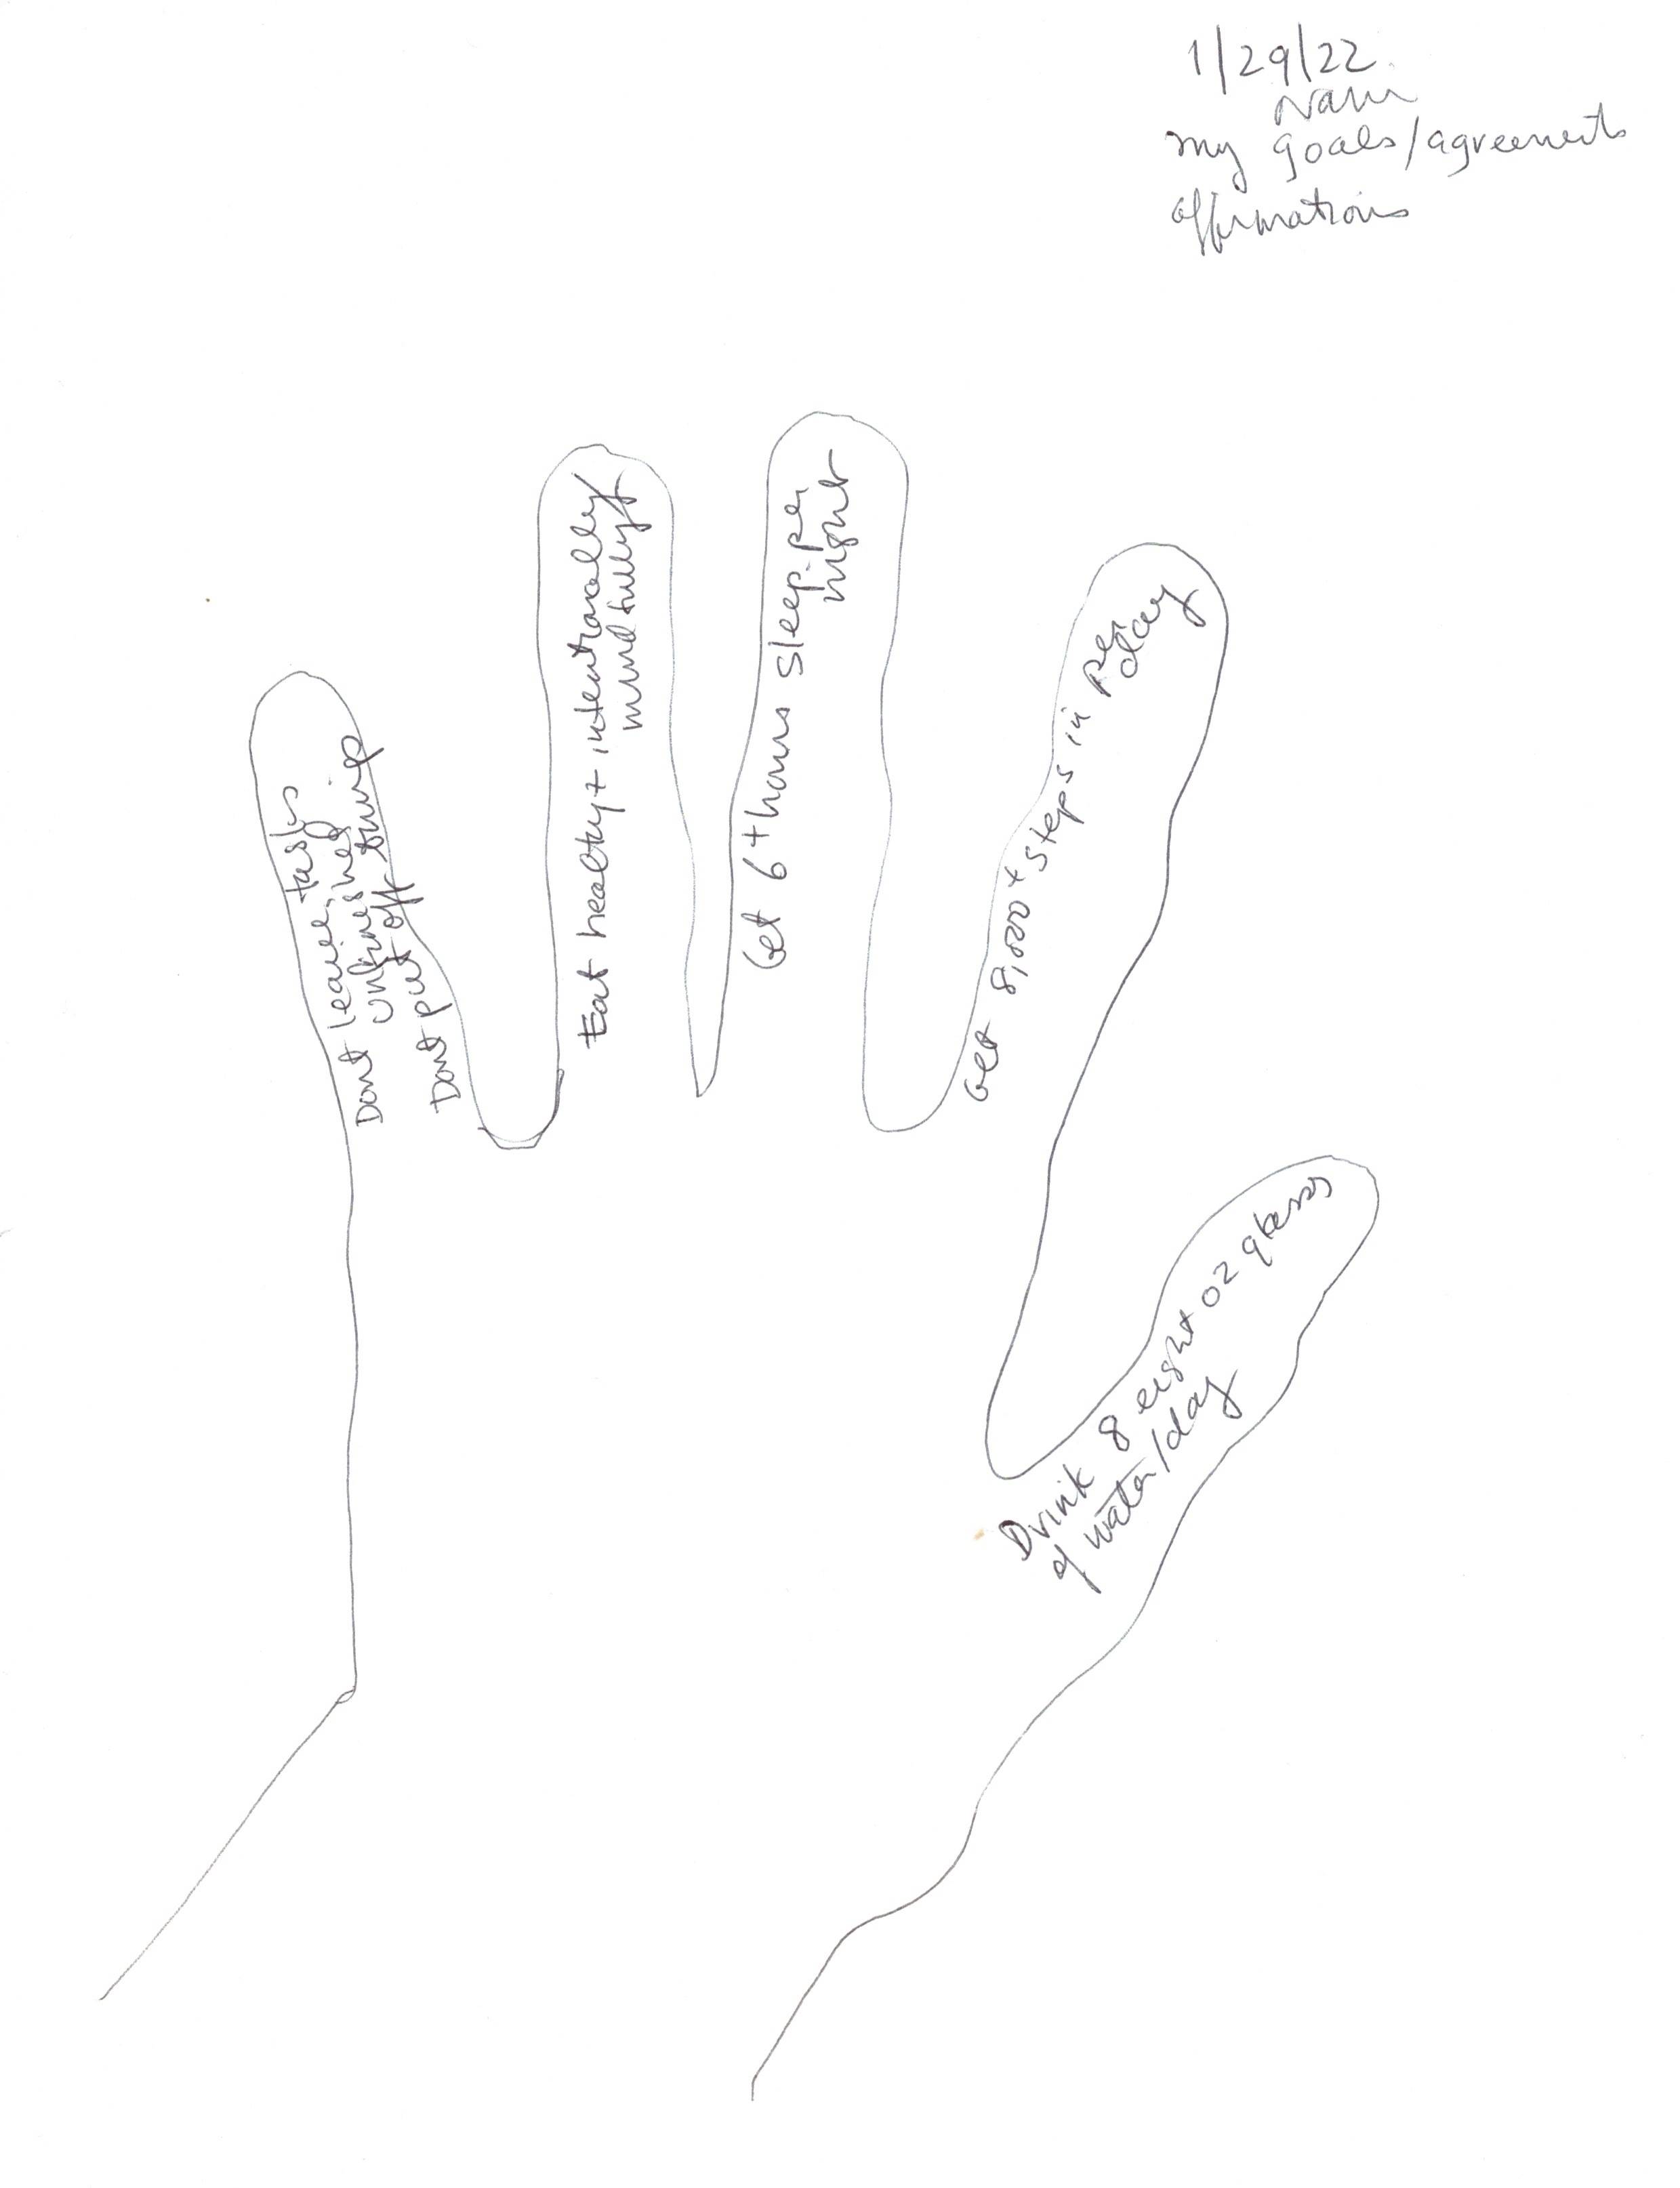 1/29/22
my goals/agreements
affirmations
Dont leave tasks
unfinished
Dont put off
Eat healthy + intentionally
mindfully
Get 6+ hours sleep per
night
Get 8,000+ steps in per
day
Drink 8 eight oz glasses
of water/day